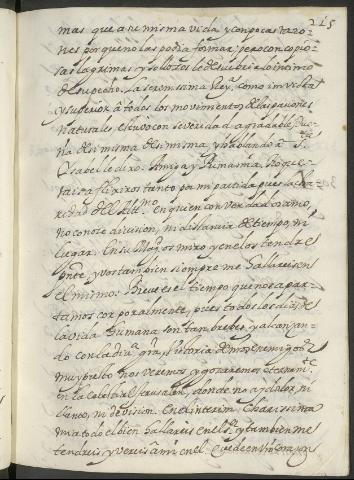 215
mas que a su misma vida y con pocas razo-
nes porque no las podia formar; pero con copio-
sas lagrimas y sollozos le descubrio lo intimo
de su pecho. La serenissima Reyna, como invicta
y superior à todos los movimientos de las passiones
naturales, estuvo con severidad agradable, due-
ña de si misma, y hablando a Sta.
Ysabel le dixo: Amiga y Prima mia, no quer-
ais afligiros tanto por mi partida pues la cha-
ridad del Altmo. en quien con verdad os amo,
no conoce division, ni distancia de tiempo, ni
lugar. En su Magd. os miro y en el os tendre
pnte. y vos tambien siempre me hallareis en
el mismo. Breve es el tiempo que nos apar-
tamos corporalmente, pues todos los dias de
la vida humana son tan breves y alcanzan-
do con la diva. gra. victoria de nros. enemigos
muy presto nos veremos y gozaremos eternamte.
en la celestial Jerusalen, donde no ay dolor, ni
llanto, ni division. En el interim Charissima
mia todo el bien hallareis en el Sr. y tambien me
tendreis y vereis a mi en el: quede en vro. corazon